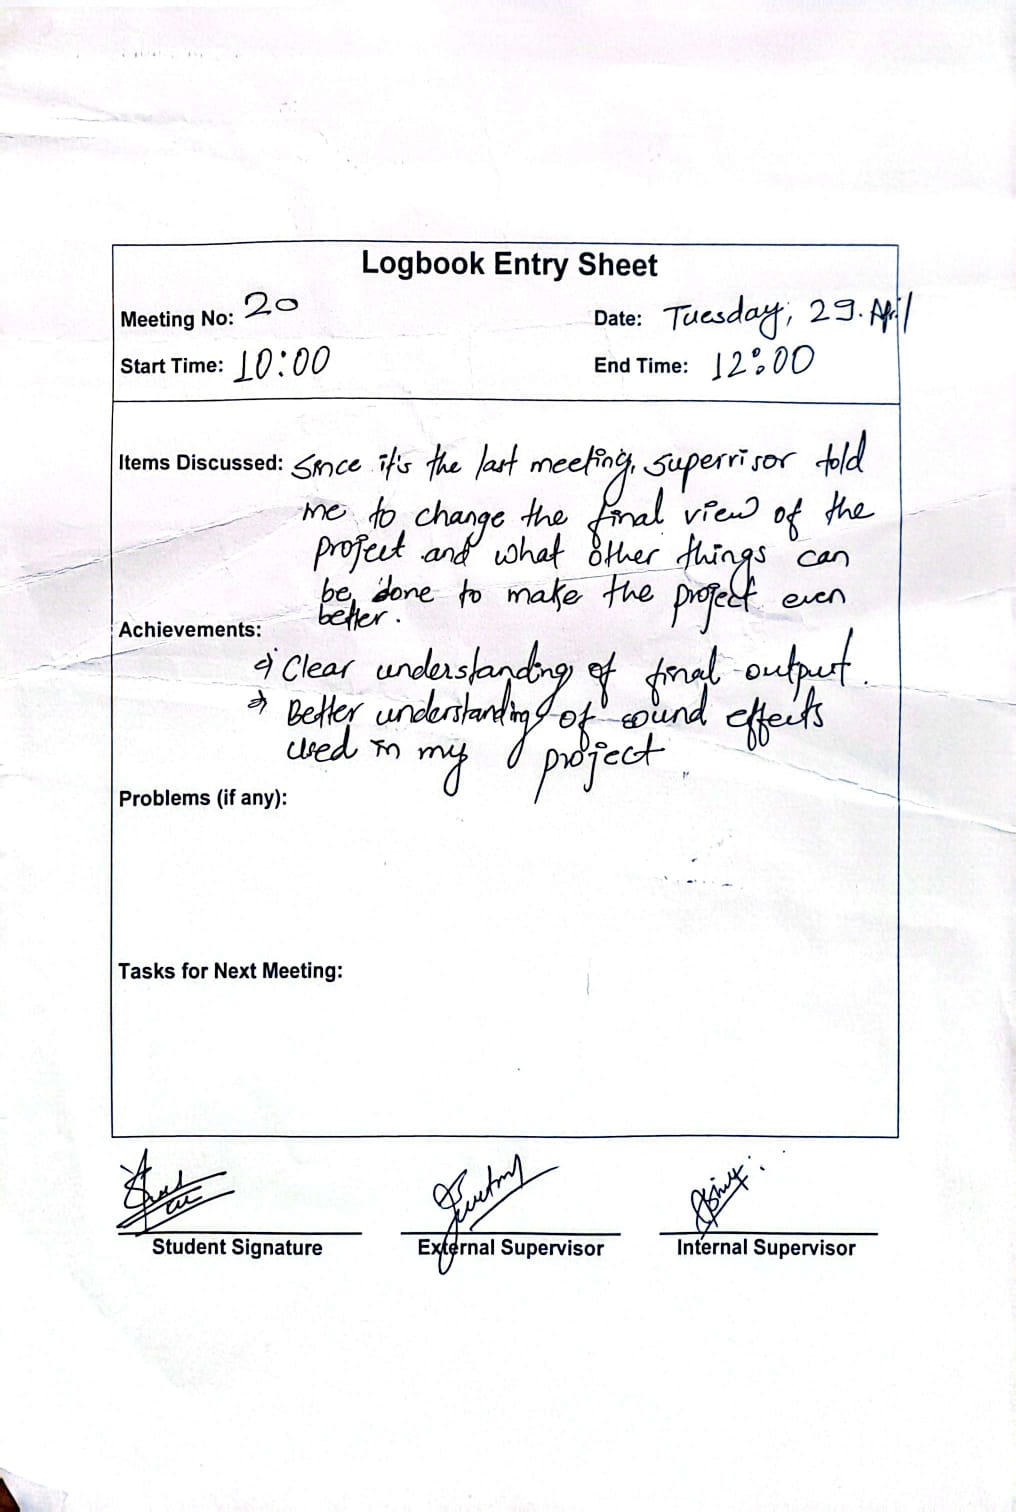 Logbook Entry Sheet
Meeting No: 20
Date: Tuesday, 29. April
Start Time: 10:00
End Time: 12:00
Items Discussed: Since it's the last meeting, supervisor told
me to change the final view of the
project and what other things can
be done to make the project even
better.
Achievements:
Clear understanding of final output.
Better understanding of sound effects
used in my project
Problems (if any):
Tasks for Next Meeting:
Student Signature
External Supervisor
Internal Supervisor